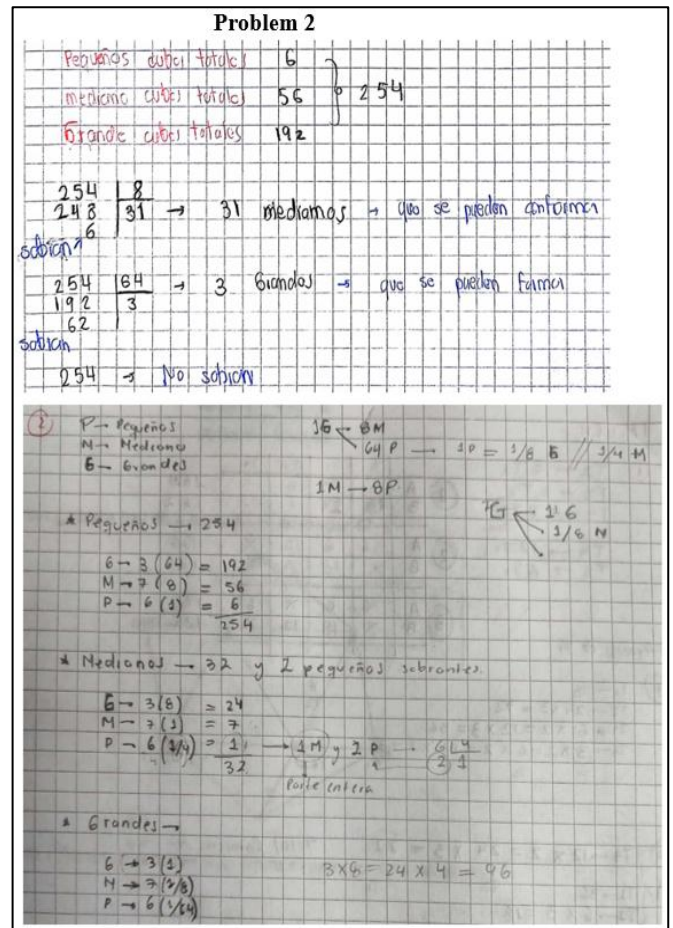 Problem 2
Pequeños cubos totales 6
mediano cubos totales 56 254
Grande cubos totales 192
254 8
248 31 → 31 medianos → que se pueden conformar
6
sobran
254 64 → 3 Grandes → que se pueden formar
192 3
62
sobran
254 → No sobran
2 P → Pequeños 1G 8M
M → Mediano 64 P → 1P = 1/8 G // 1/4 M
G → Grandes
1M → 8P
G 1 G
* Pequeños → 254 1/8 M
G → 3 (64) = 192
M → 7 (8) = 56
P → 6 (1) = 6
254
* Medianos → 32 y 2 pequeños sobrantes.
G → 3(8) = 24
M → 7(1) = 7
P → 6 (1/4) = 1 → 1M y 2P 6 4
32 2 1
Parte entera
* Grandes →
G → 3(1) 3x8 = 24 x 4 = 96
M → 7(1/8)
P → 6(1/64)